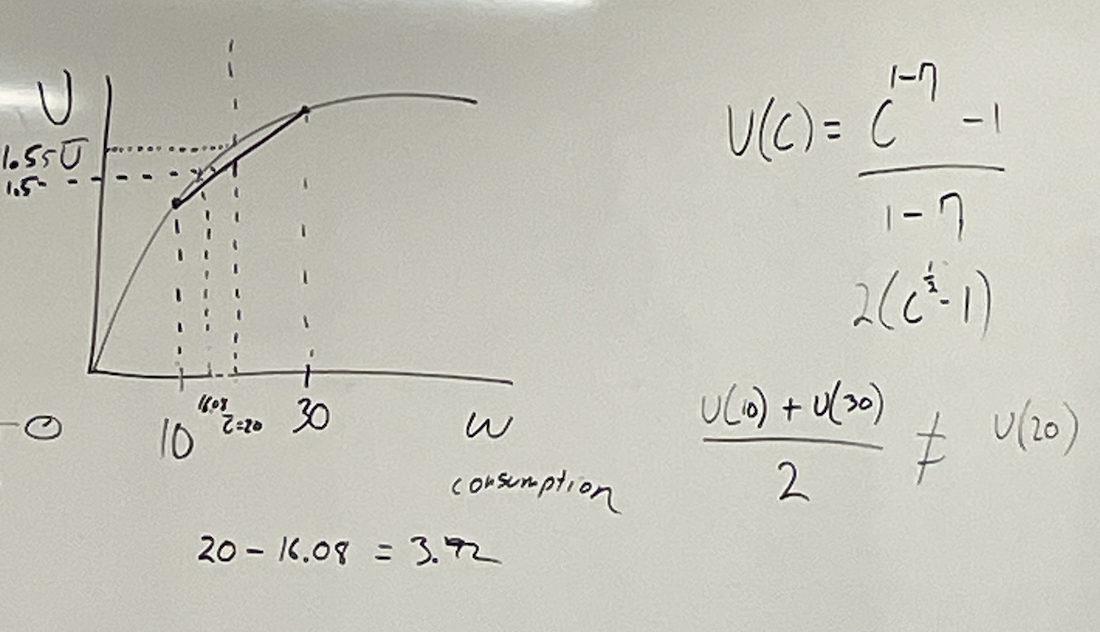 U
1.55 Ū
1.5
O
10
16.08
c̄=20
30
W
consumption
20 - 16.08 = 3.92
U(C) = (C^(1-η) - 1) / (1-η)
2(C^(1/2) - 1)
(U(10) + U(30)) / 2 ≠ U(20)